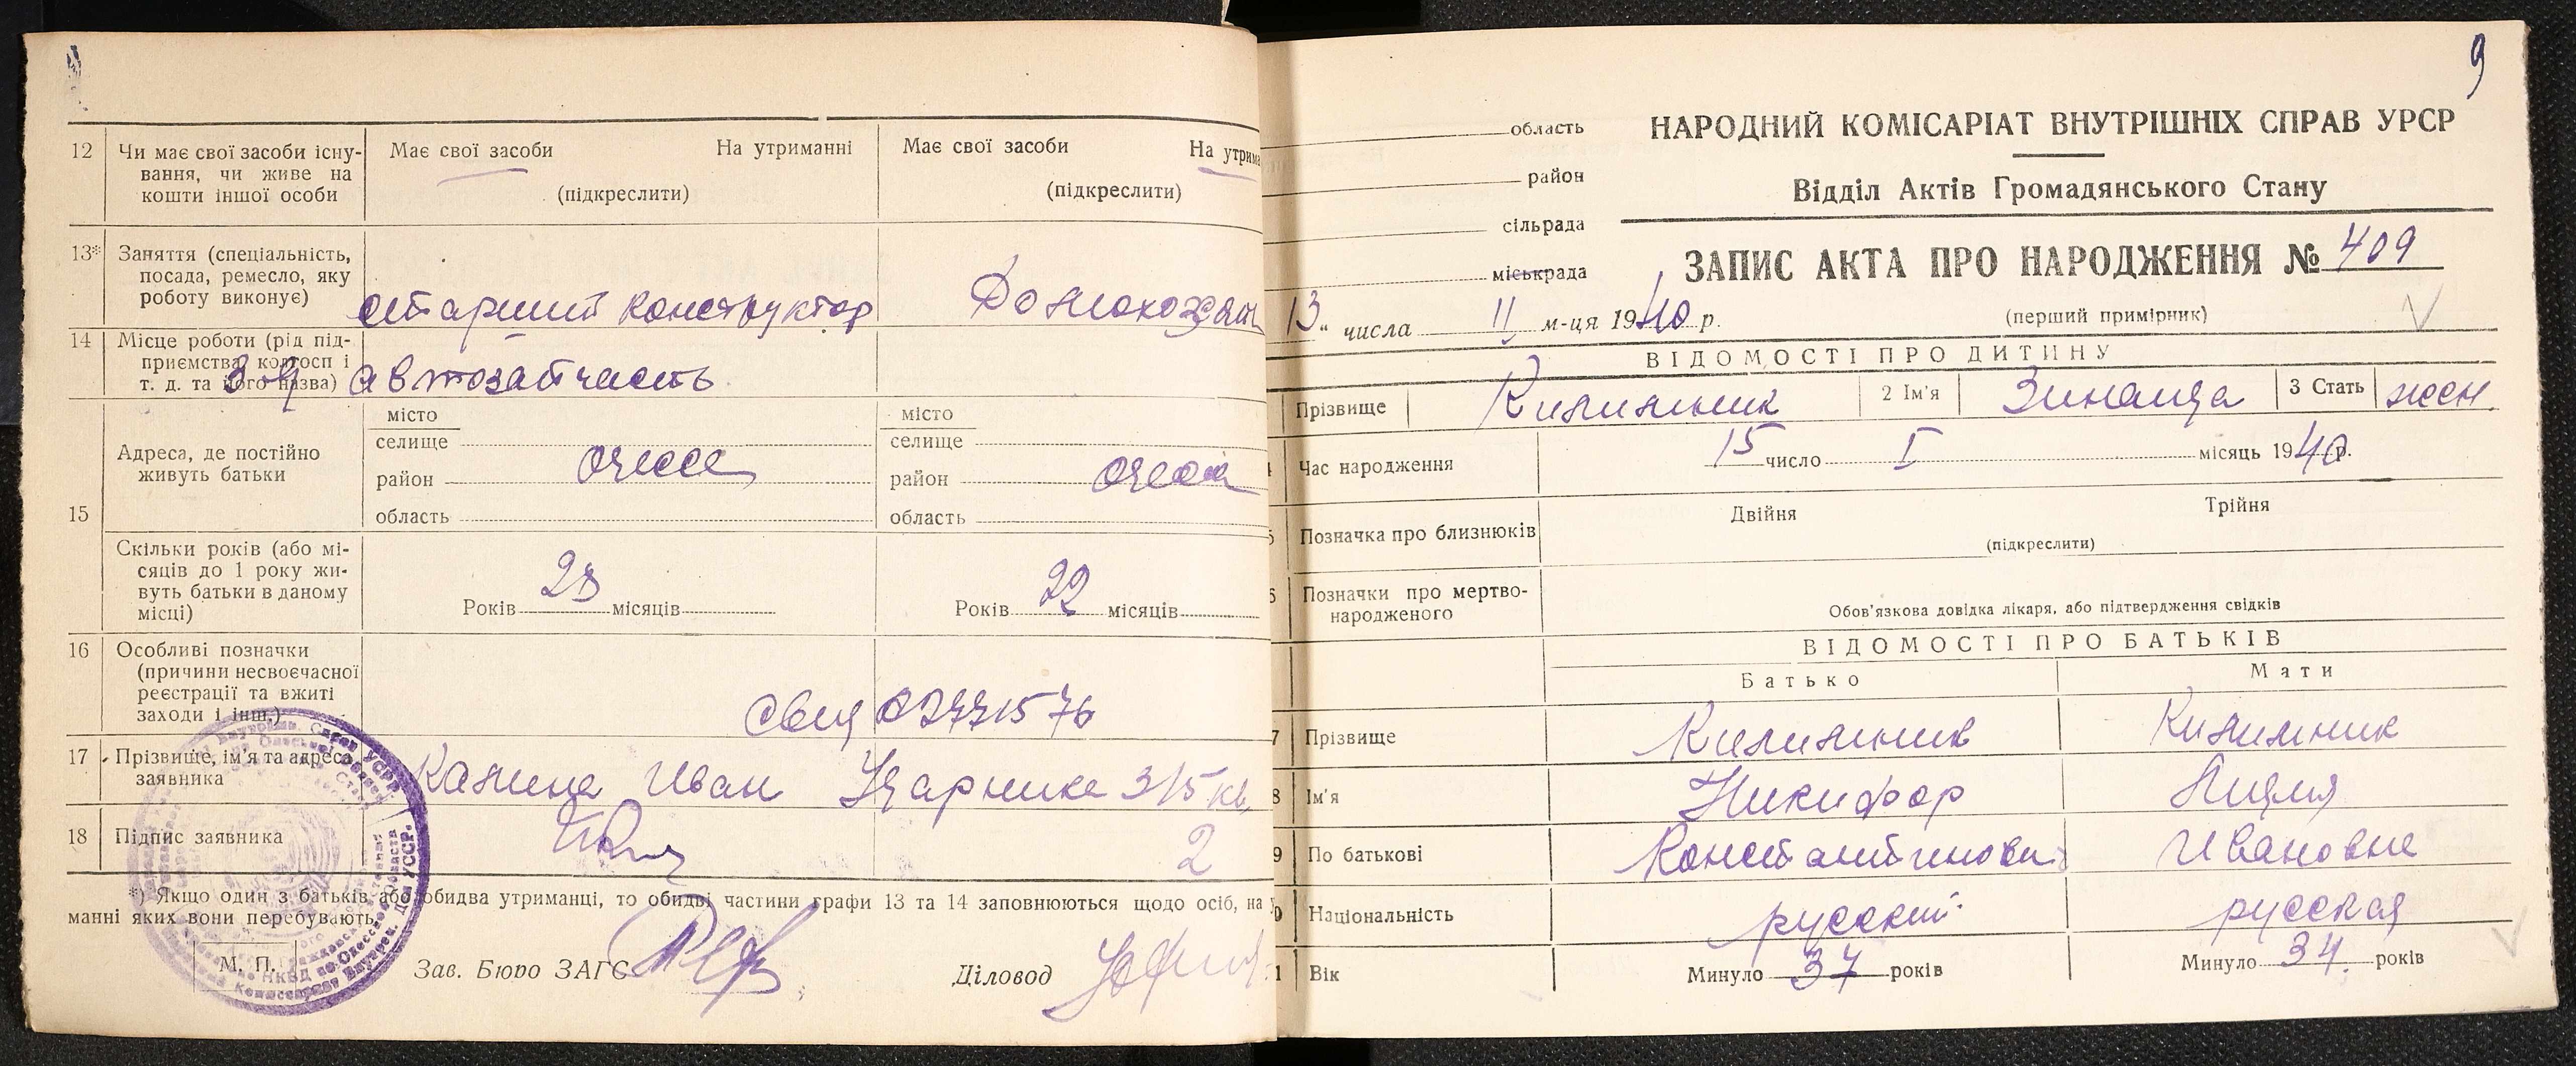 12 Чи має свої засоби існування, чи живе на кошти іншої особи
Має свої засоби На утриманні
(підкреслити)
Має свої засоби На утрима
(підкреслити)
13* Заняття (спеціальність, посада, ремесло, яку роботу виконує)
старший конструктор
Домохозяй
14 Місце роботи (рід підприємства, колгосп і т. д. та його назва)
З-д автозапчасть
15 Адреса, де постійно живуть батьки
місто
селище
район Одесса
область
місто
селище
район Одесса
область
Скільки років (або місяців до 1 року живуть батьки в даному місці)
Років 28 місяців
Років 22 місяців
16 Особливі позначки (причини несвоєчасної реєстрації та вжиті заходи і інш.)
17 Прізвище, ім'я та адреса заявника
Иван Ударника 3/5 кв.
2
18 Підпис заявника
*) Якщо один з батьків або обидва утриманці, то обидві частини графи 13 та 14 заповнюються щодо осіб, на у
манні яких вони перебувають.
М. П.
Зав. Бюро ЗАГС
Діловод
9
область
район
сільрада
міськрада
НАРОДНИЙ КОМІСАРІАТ ВНУТРІШНІХ СПРАВ УРСР
Відділ Актів Громадянського Стану
ЗАПИС АКТА ПРО НАРОДЖЕННЯ № 409
13" числа II м-ця 1940 р.
(перший примірник)
ВІДОМОСТІ ПРО ДИТИНУ
Прізвище Килимник 2 Ім'я Зинаида 3 Стать жен.
Час народження 15 число I місяць 1940 р.
Позначка про близнюків Двійня Трійня
(підкреслити)
Позначки про мертвонародженого
Обов'язкова довідка лікаря, або підтвердження свідків
ВІДОМОСТІ ПРО БАТЬКІВ
Батько Мати
7 Прізвище Килимник Килимник
8 Ім'я Никифор Лидия
9 По батькові Константинови Ивановна
Національність русский русская
1 Вік Минуло 37 років Минуло 34 років